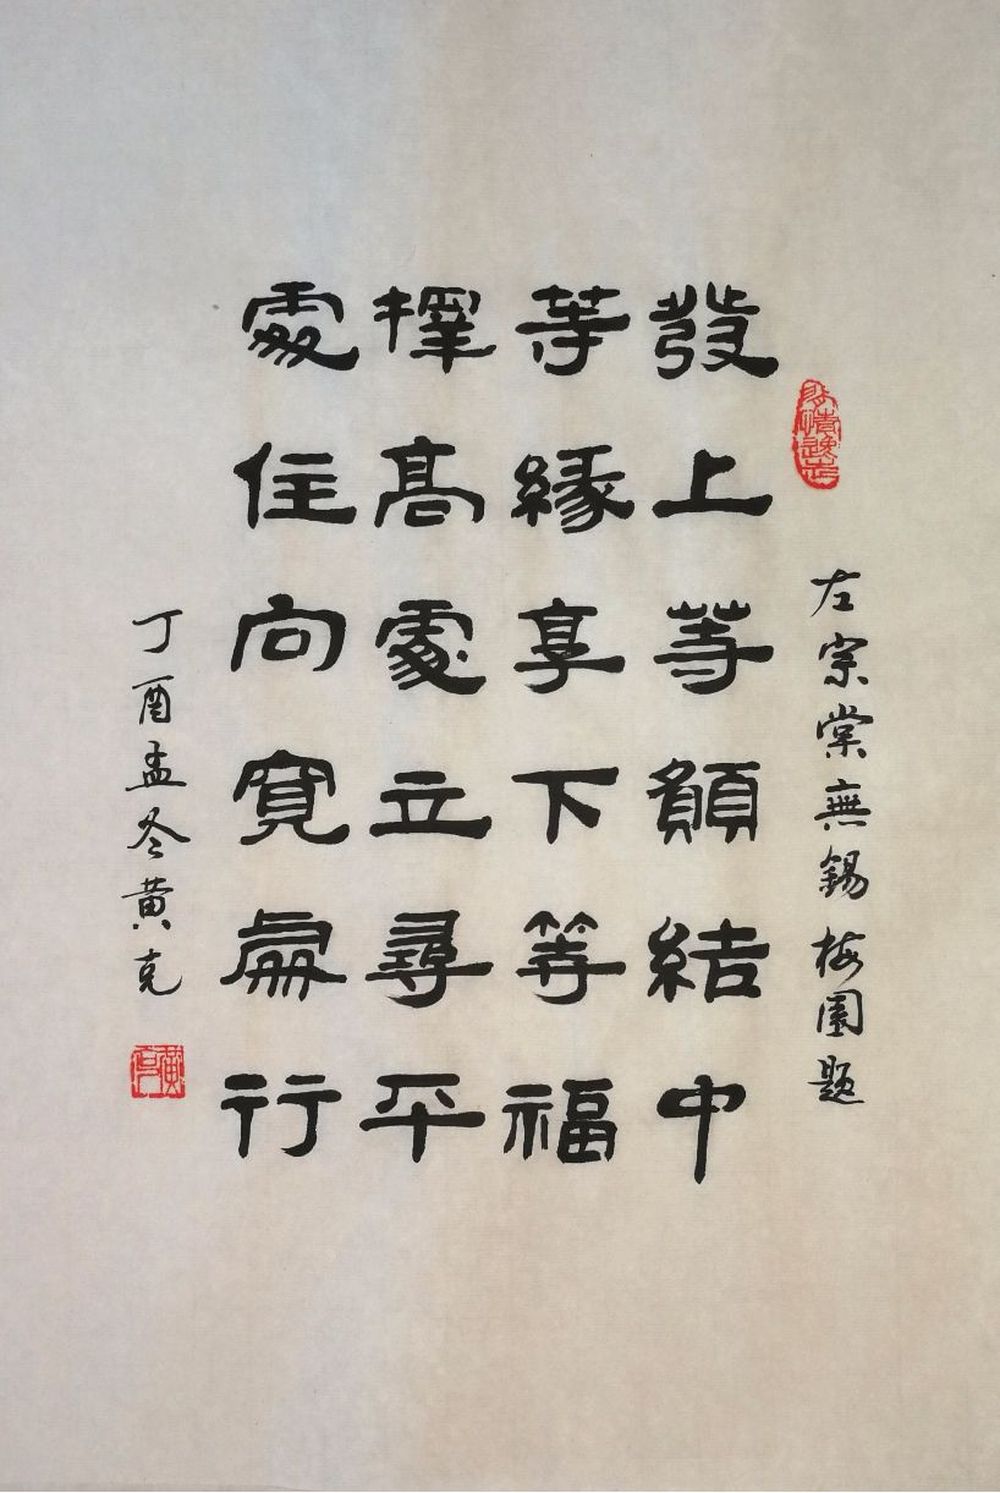 左宗棠無錫梅園題
發上等願結中
等緣享下等福
擇高處立尋平
處住向寬處行
丁酉孟冬黄克